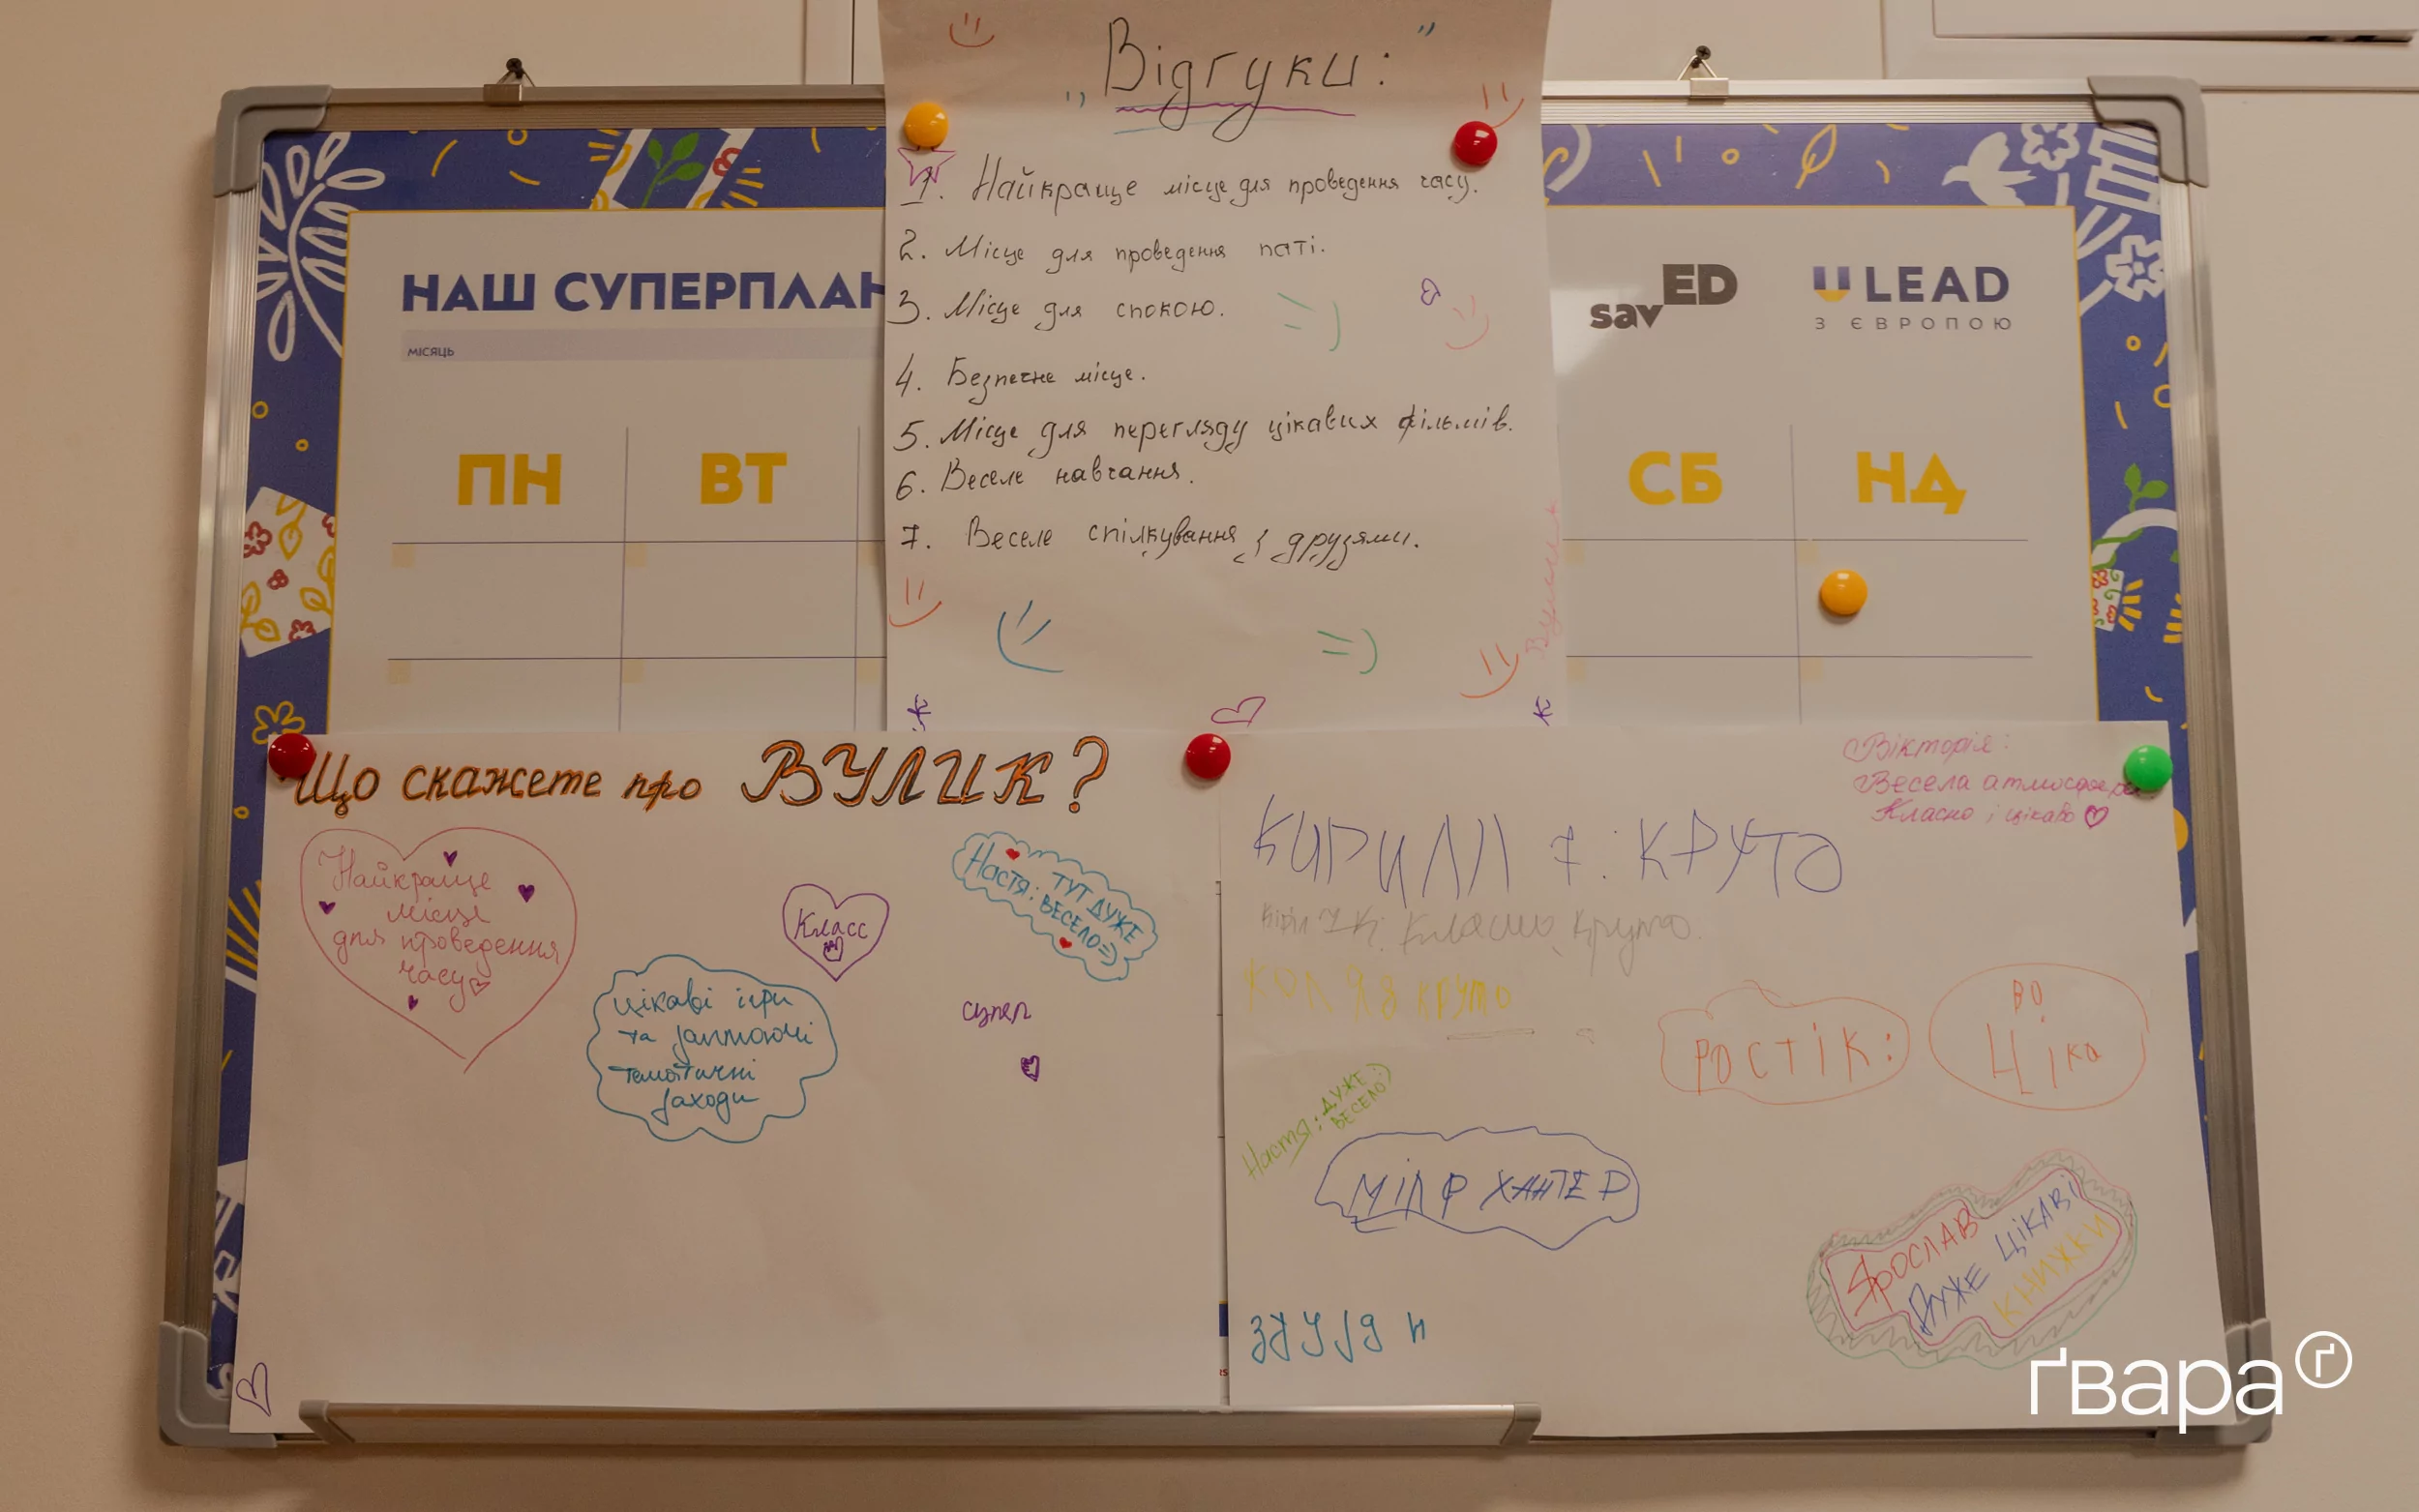 „Відгуки:”
1. Найкраще місце для проведення часу.
2. Місце для проведення паті.
3. Місце для спокою.
4. Безпечне місце.
5. Місце для перегляду цікавих фільмів.
6. Веселе навчання.
7. Веселе спілкування з друзями.
Вулик
НАШ СУПЕРПЛАН
МІСЯЦЬ
savED
ULEAD
З ЄВРОПОЮ
ПН ВТ СБ НД
Що скажете про ВУЛИК?
Найкраще
місце
для проведення
часу
Класс
Настя: ТУТ ДУЖЕ
ВЕСЕЛО=)
цікаві ігри
та
тематичні
заходи
супер
Вікторія:
Весела атмосфера
Класно і цікаво
КИРИЛЛ 7: КРУТО
Класно, круто.
КОЛЯ 8 КРУТО
РОСТІК:
ВО
Ціка
Настя: ДУЖЕ :)
ВЕСЕЛО
МІЛФ ХАНТЕР
ЯРОСЛАВ
ДУЖЕ ЦІКАВІ
КНИЖКИ
ґвара ґ